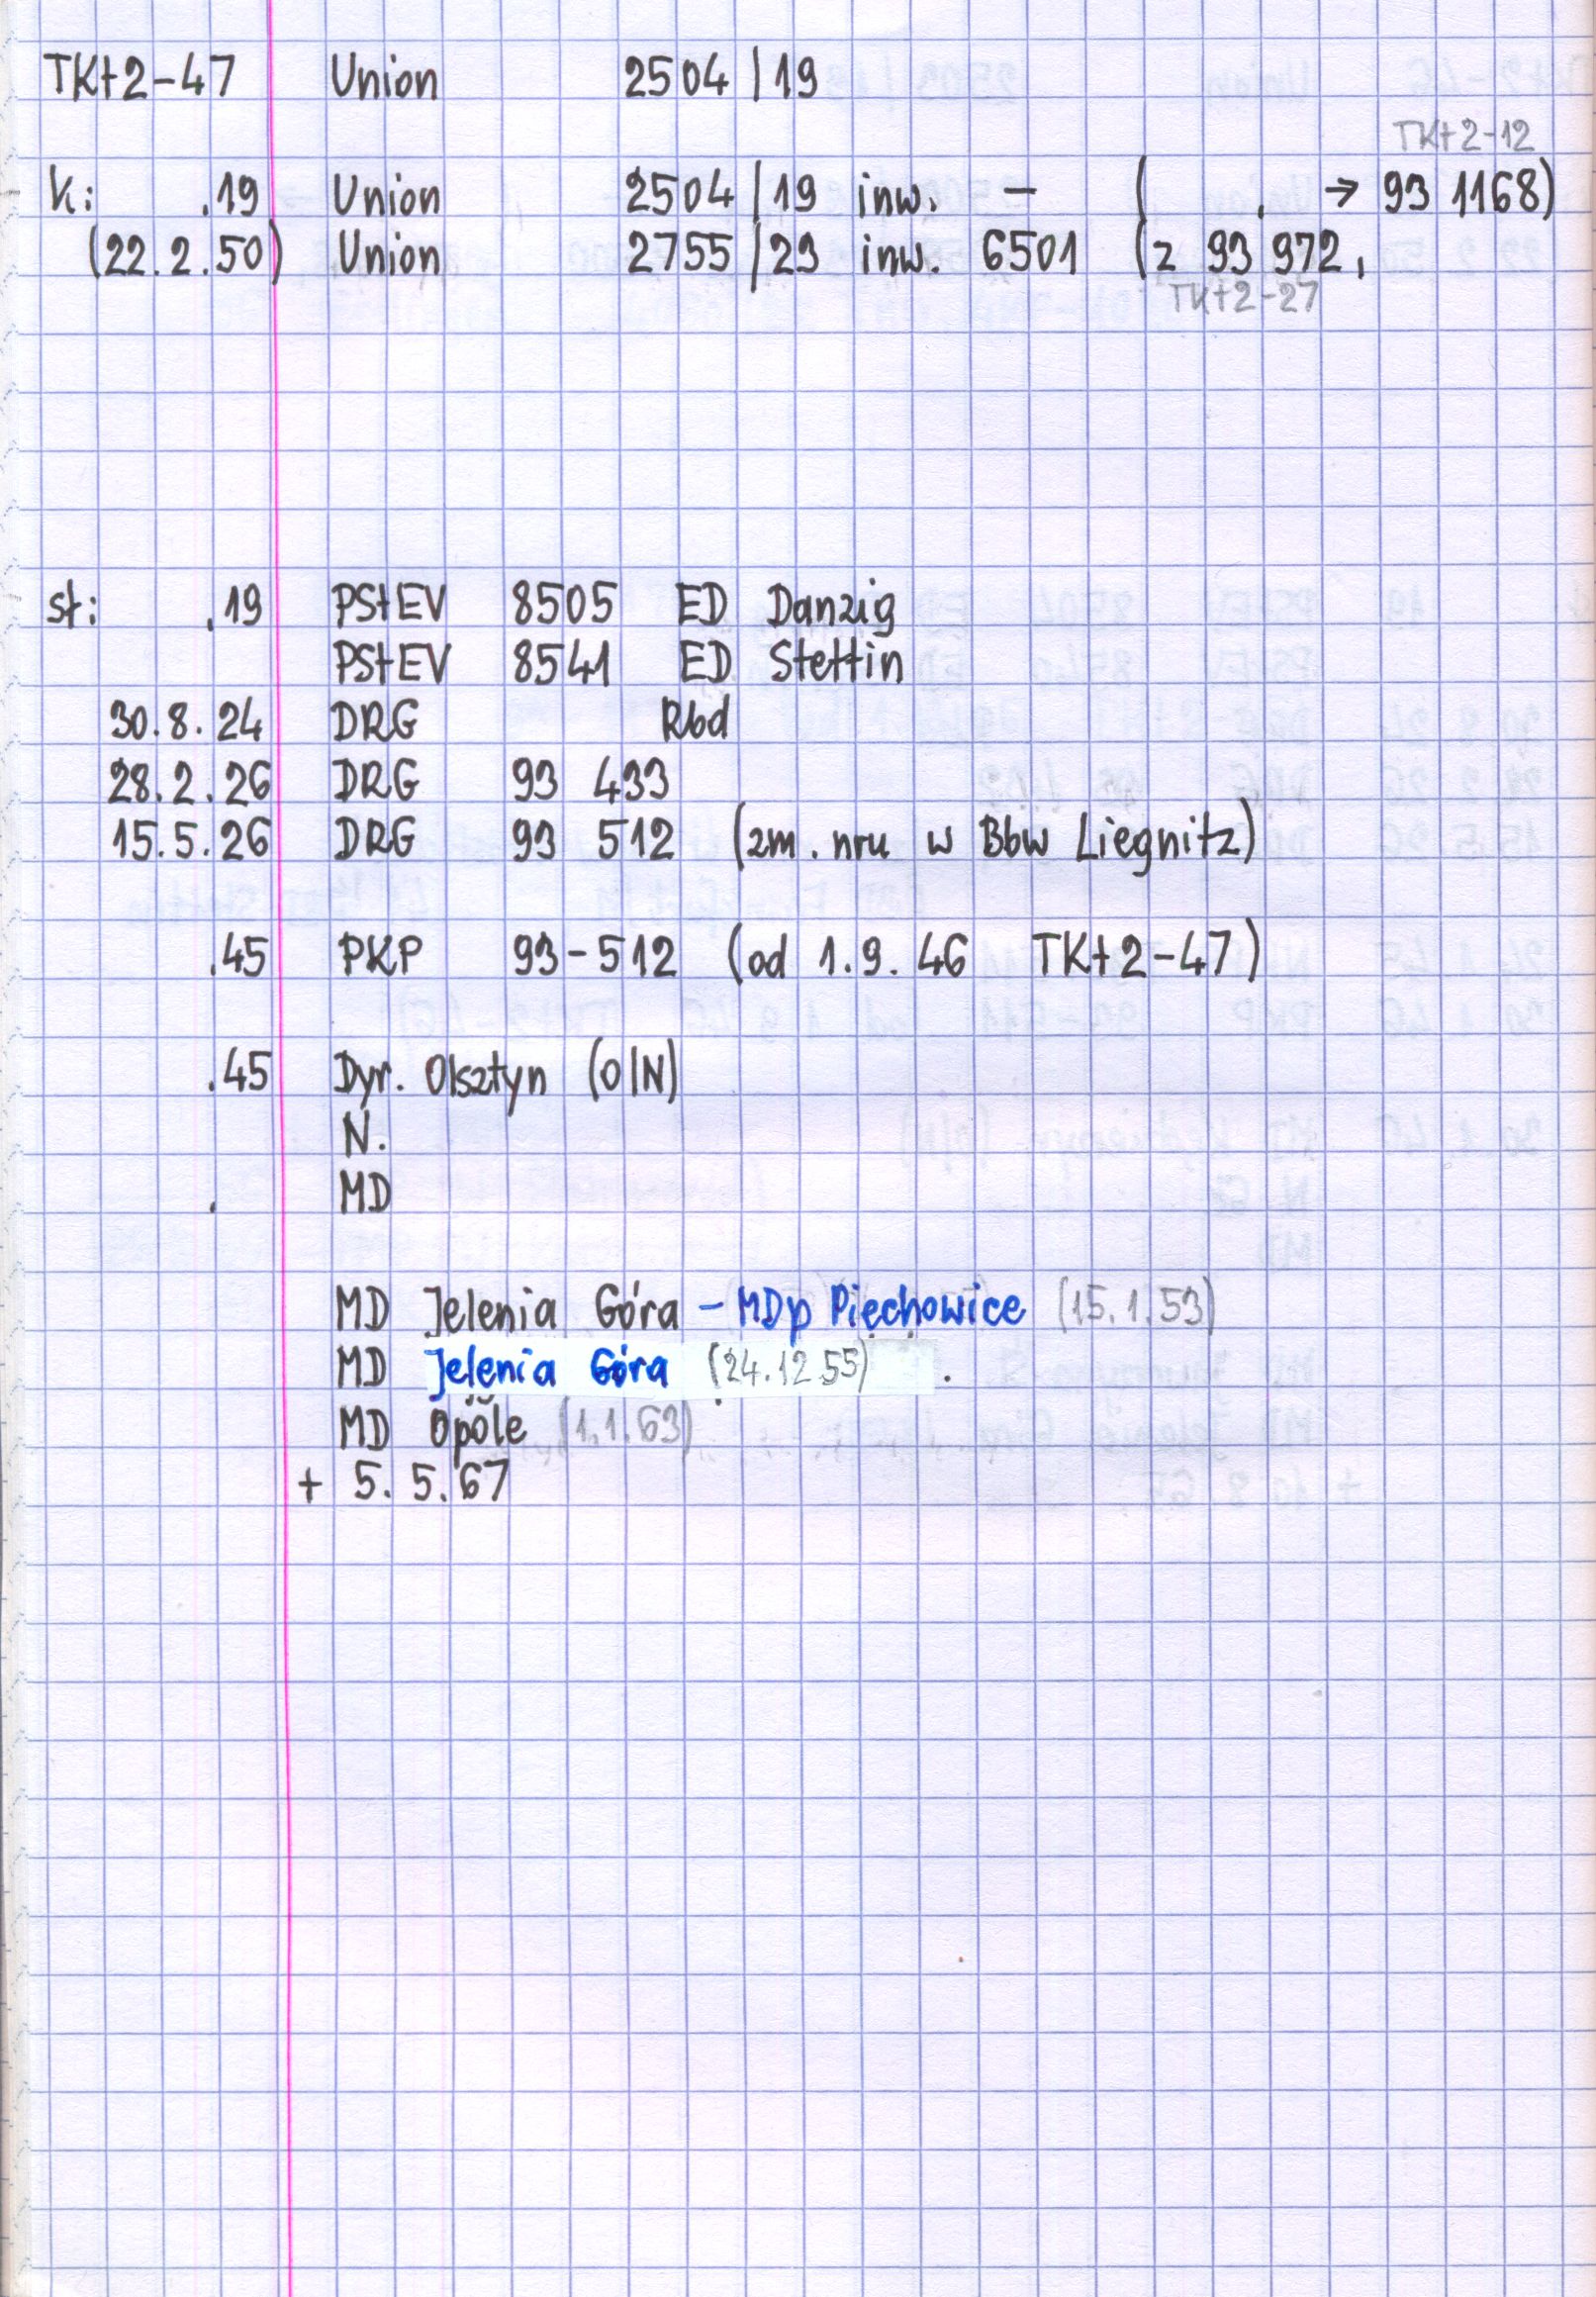 TKt2-47 Union 2504/19
TKt2-12
k: .19 Union 2504/19 inw. – ( . → 93 1168)
(22.2.50) Union 2755/23 inw. 6501 (z 93 972,
TKt2-27
st: .19 PStEV 8505 ED Danzig
PStEV 8541 ED Stettin
30.8.24 DRG Rbd
28.2.26 DRG 93 433
15.5.26 DRG 93 512 (zm. nru w Bbw Liegnitz)
.45 PKP 93-512 (od 1.9.46 TKt2-47)
.45 Dyr. Olsztyn (O/N)
N.
. MD
MD Jelenia Góra – MDp Piechowice (15.1.53)
MD Jelenia Góra (24.12.55) .
MD Opole (1.1.63)
+ 5.5.67